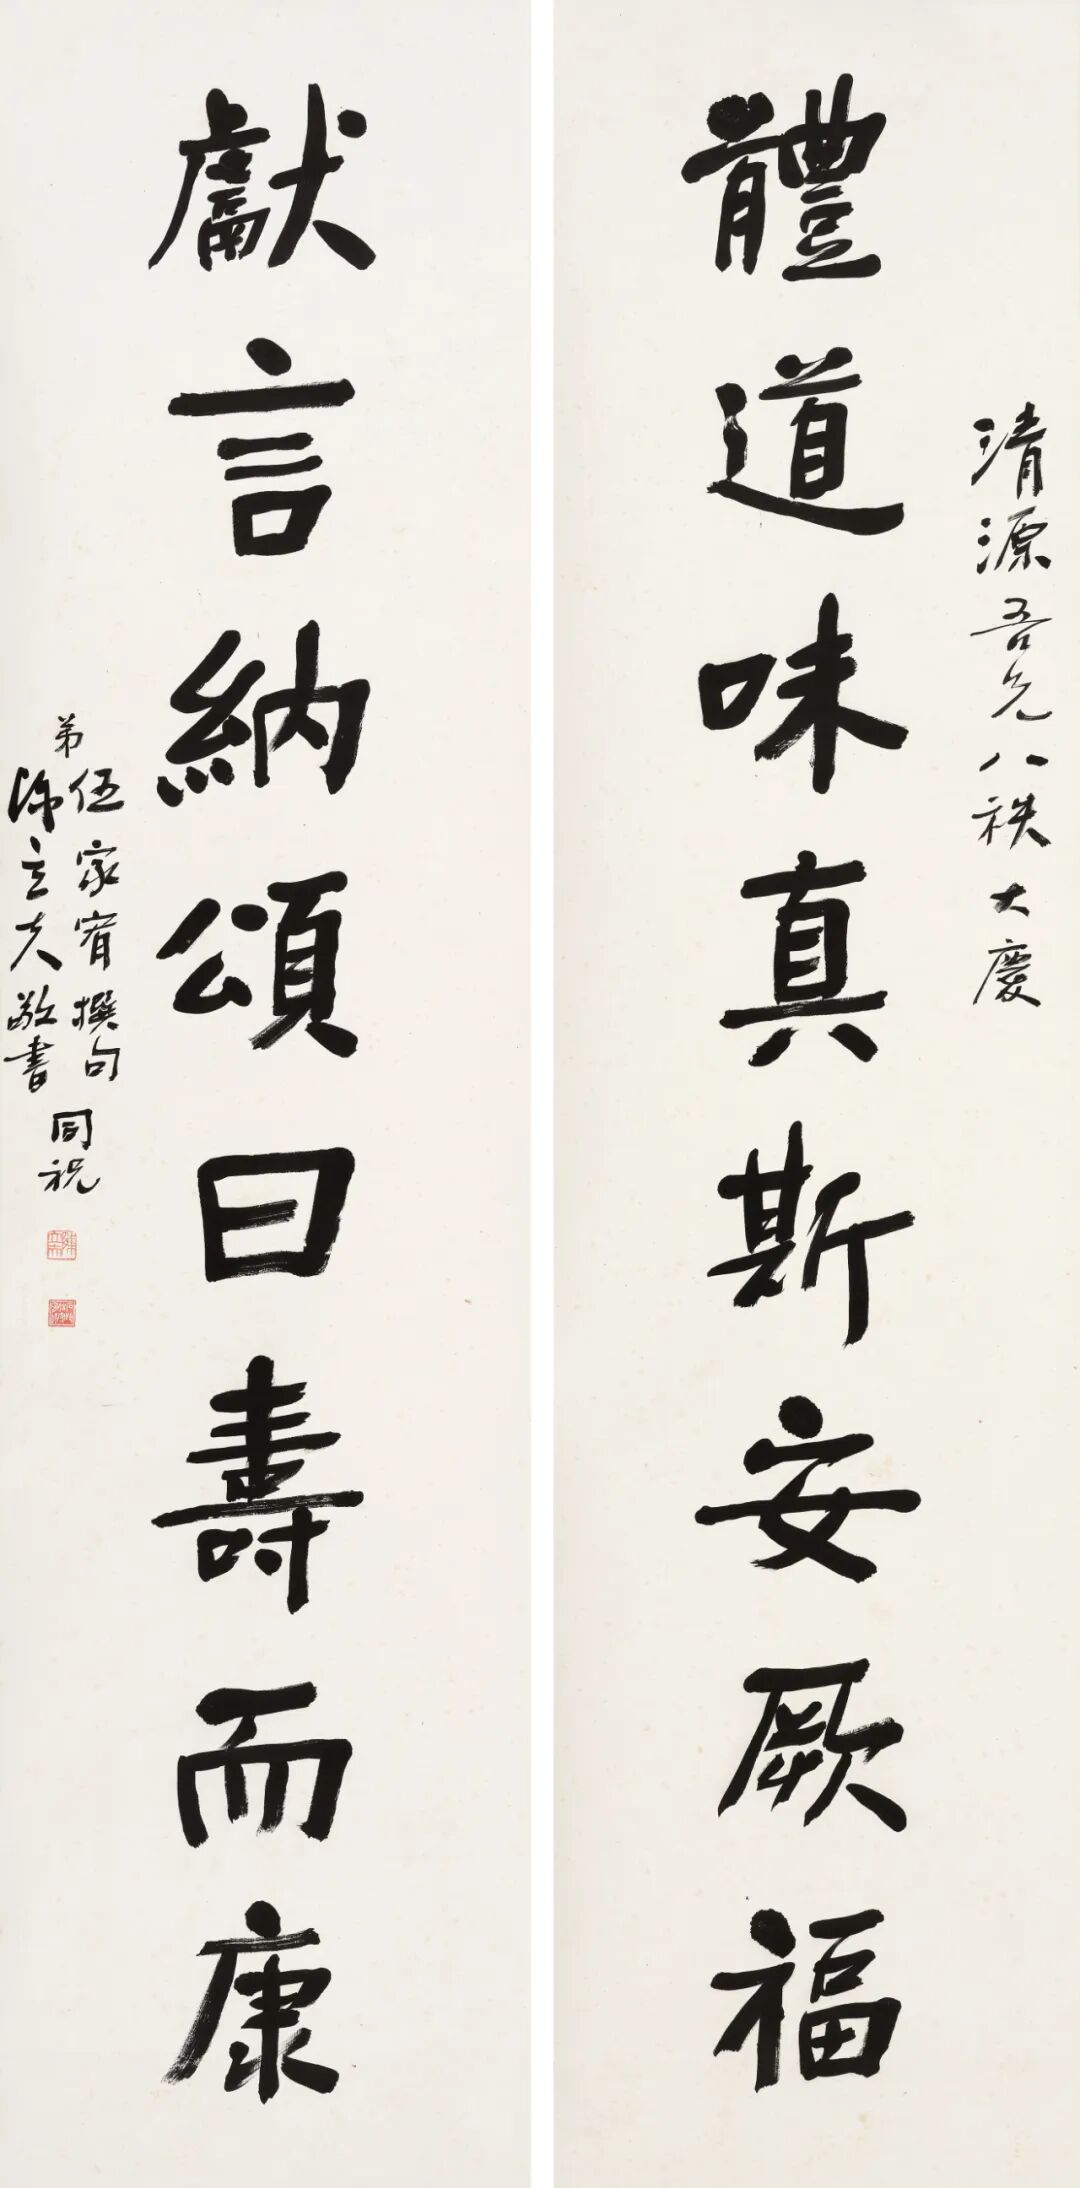 清源吾兄八秩大慶
體道味真斯安厥福
獻言納頌曰壽而康
弟
伍家宥撰句
陳立夫敬書
同祝